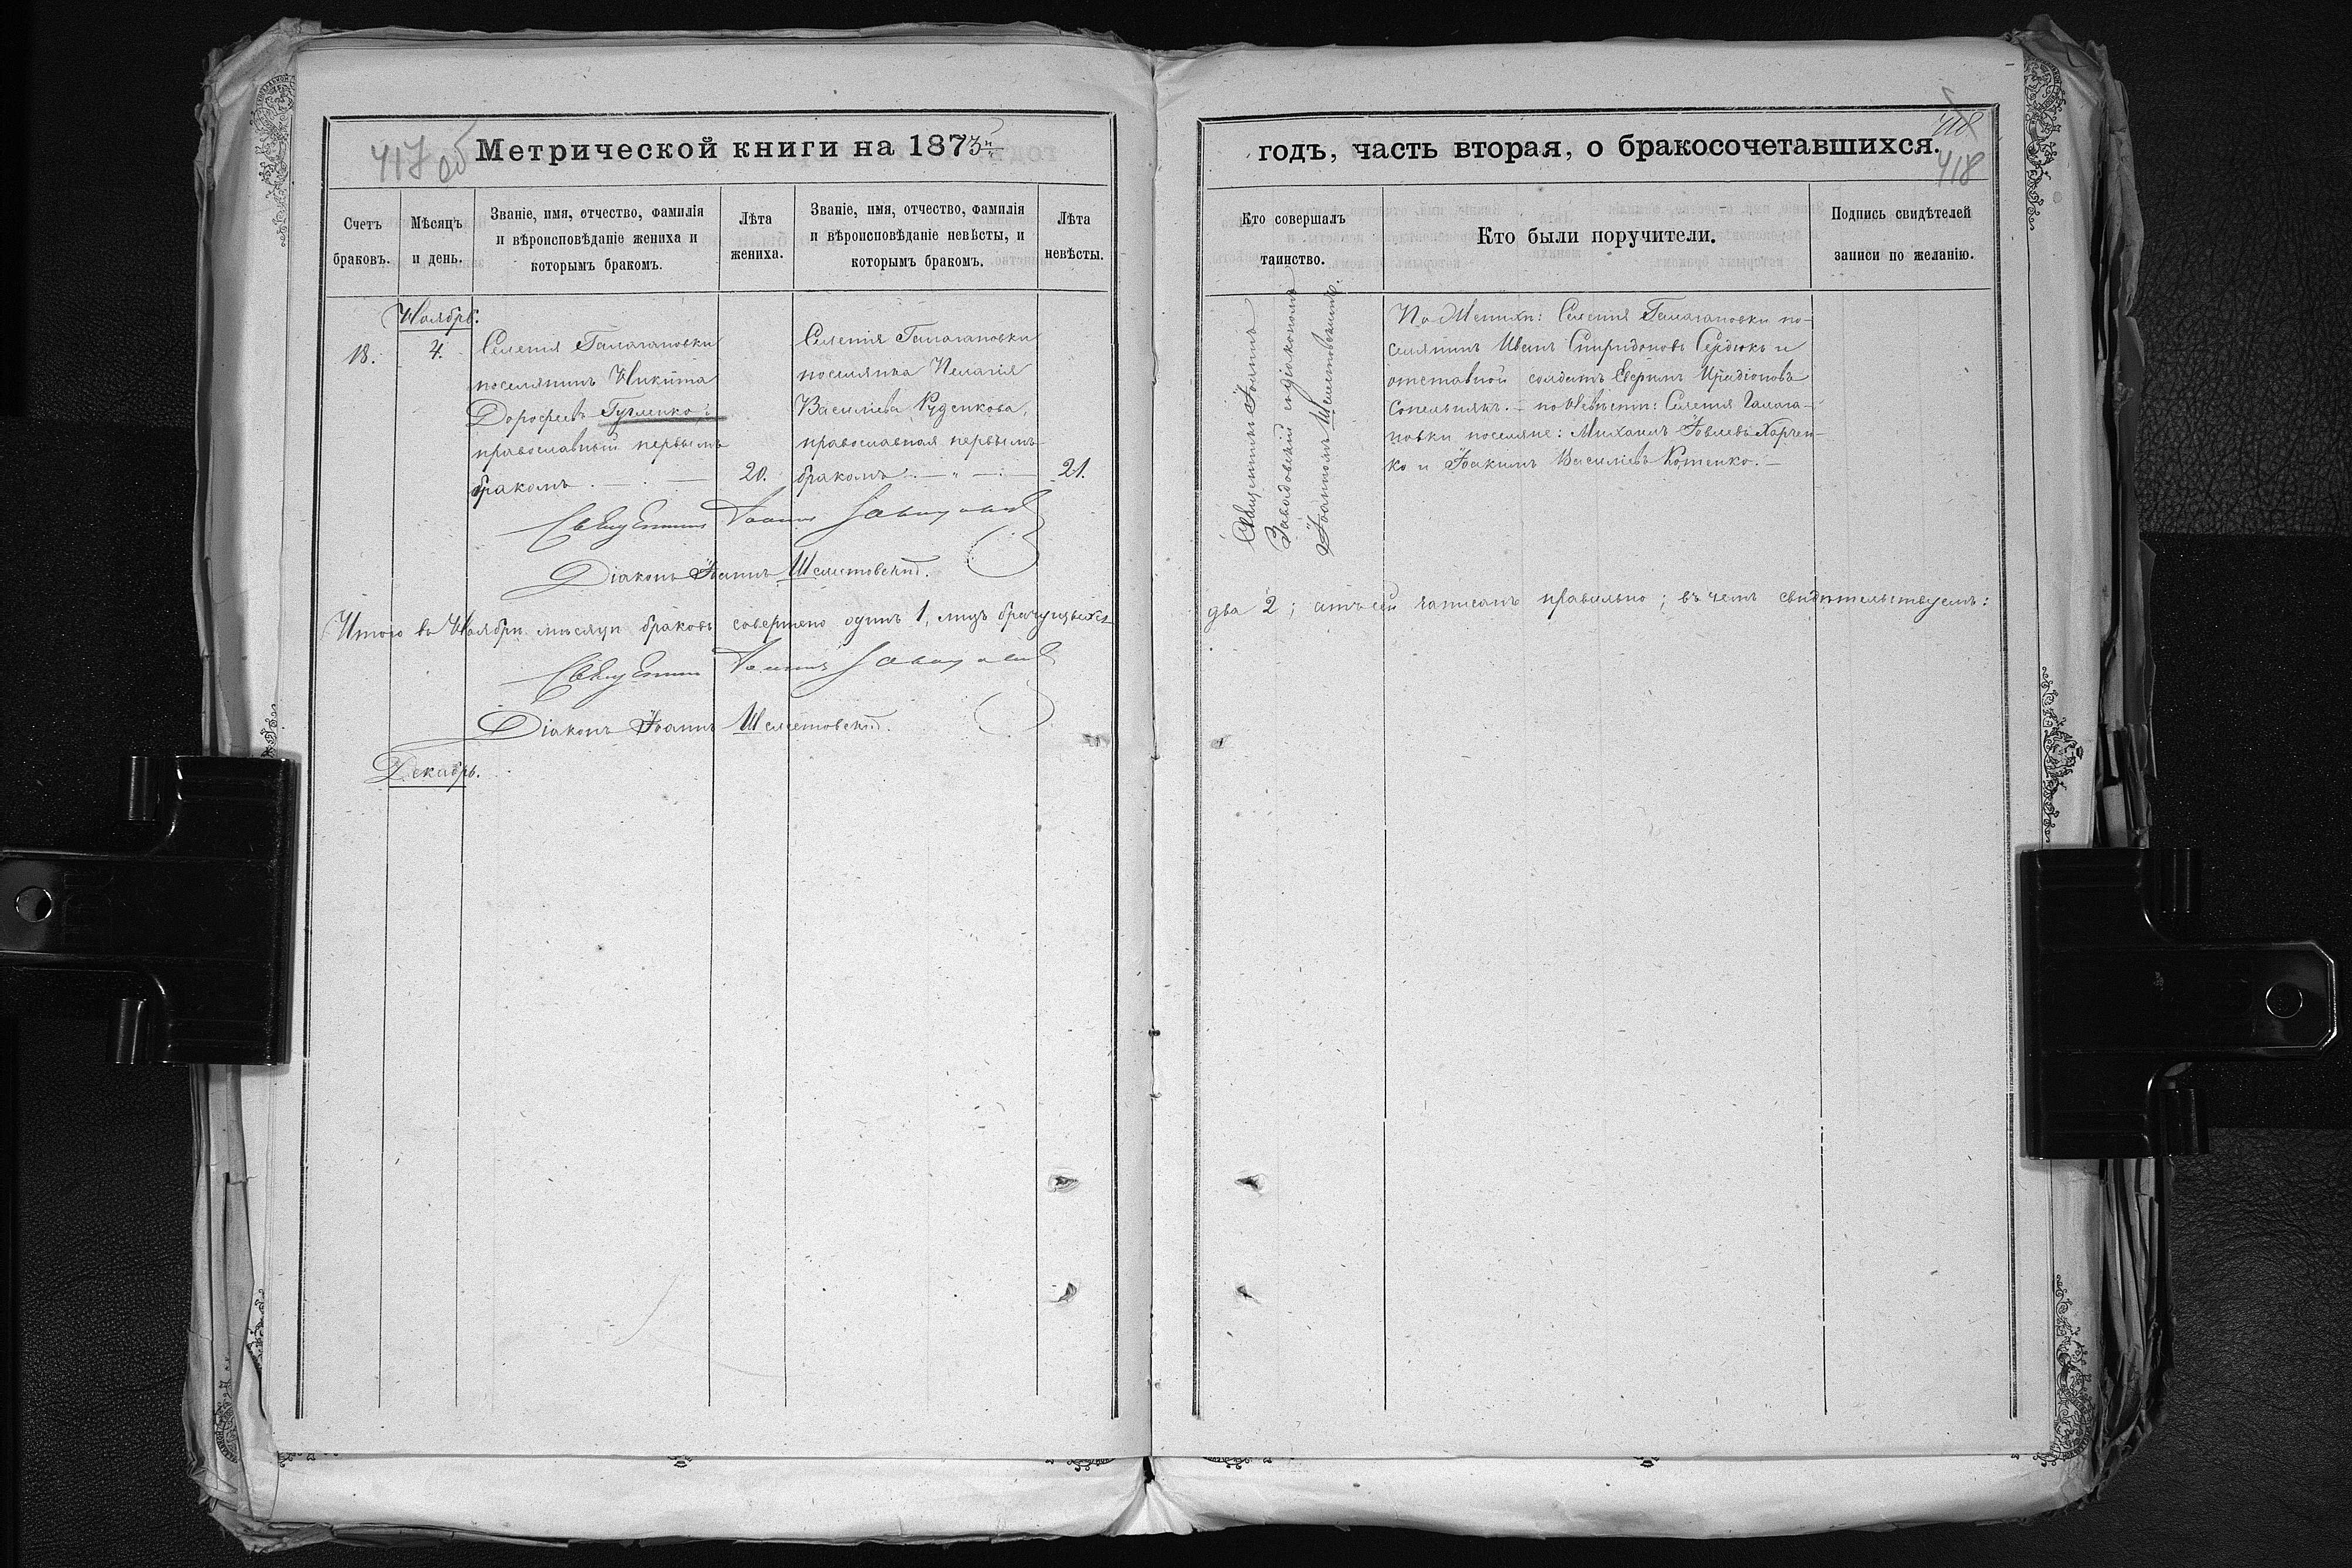 417 об
Метрической книги на 1873й
Счетъ браковъ.
Мѣсяцъ и день.
Званіе, имя, отчество, фамилія и вѣроисповѣданіе жениха и которымъ бракомъ.
Лѣта жениха.
Званіе, имя, отчество, фамилія и вѣроисповѣданіе невѣсты, и которымъ бракомъ.
Лѣта невѣсты.
Ноябрь.
18.
4.
Селенія Галагановки
поселянинъ Никита
Дорофеевъ
православный первымъ
бракомъ
20.
Селенія Галагановки
поселянка Пелагія
Василіева Руденкова,
православная первымъ
бракомъ
21.
Священникъ Іоаннъ Завадовскій
Діаконъ Іоаннъ Шелестовскій.
Итого въ Ноябрѣ мѣсяцѣ браковъ совершено одинъ 1, лицъ брачущихся
Священникъ Іоаннъ Завадовскій
Діаконъ Іоаннъ Шелестовскій.
Декабрь.
418
418
годъ, часть вторая, о бракосочетавшихся.
Кто совершалъ таинство.
Кто были поручители.
Подпись свидѣтелей записи по желанію.
Священникъ Іоаннъ
Завадовскій съ діакономъ
Іоанномъ Шелестовскимъ.
По Женихѣ: Селенія Галагановки по-
селянинъ Иванъ Спиридоновъ Сердюкъ и
отставной солдатъ Иродіоновъ
по Невѣстѣ: Селенія Галага-
новки поселяне: Михаилъ Іовлевъ Харчен-
ко и Іоакимъ Василіевъ Котенко.
два 2; записанъ правильно; въ чемъ свидѣтельствуемъ: